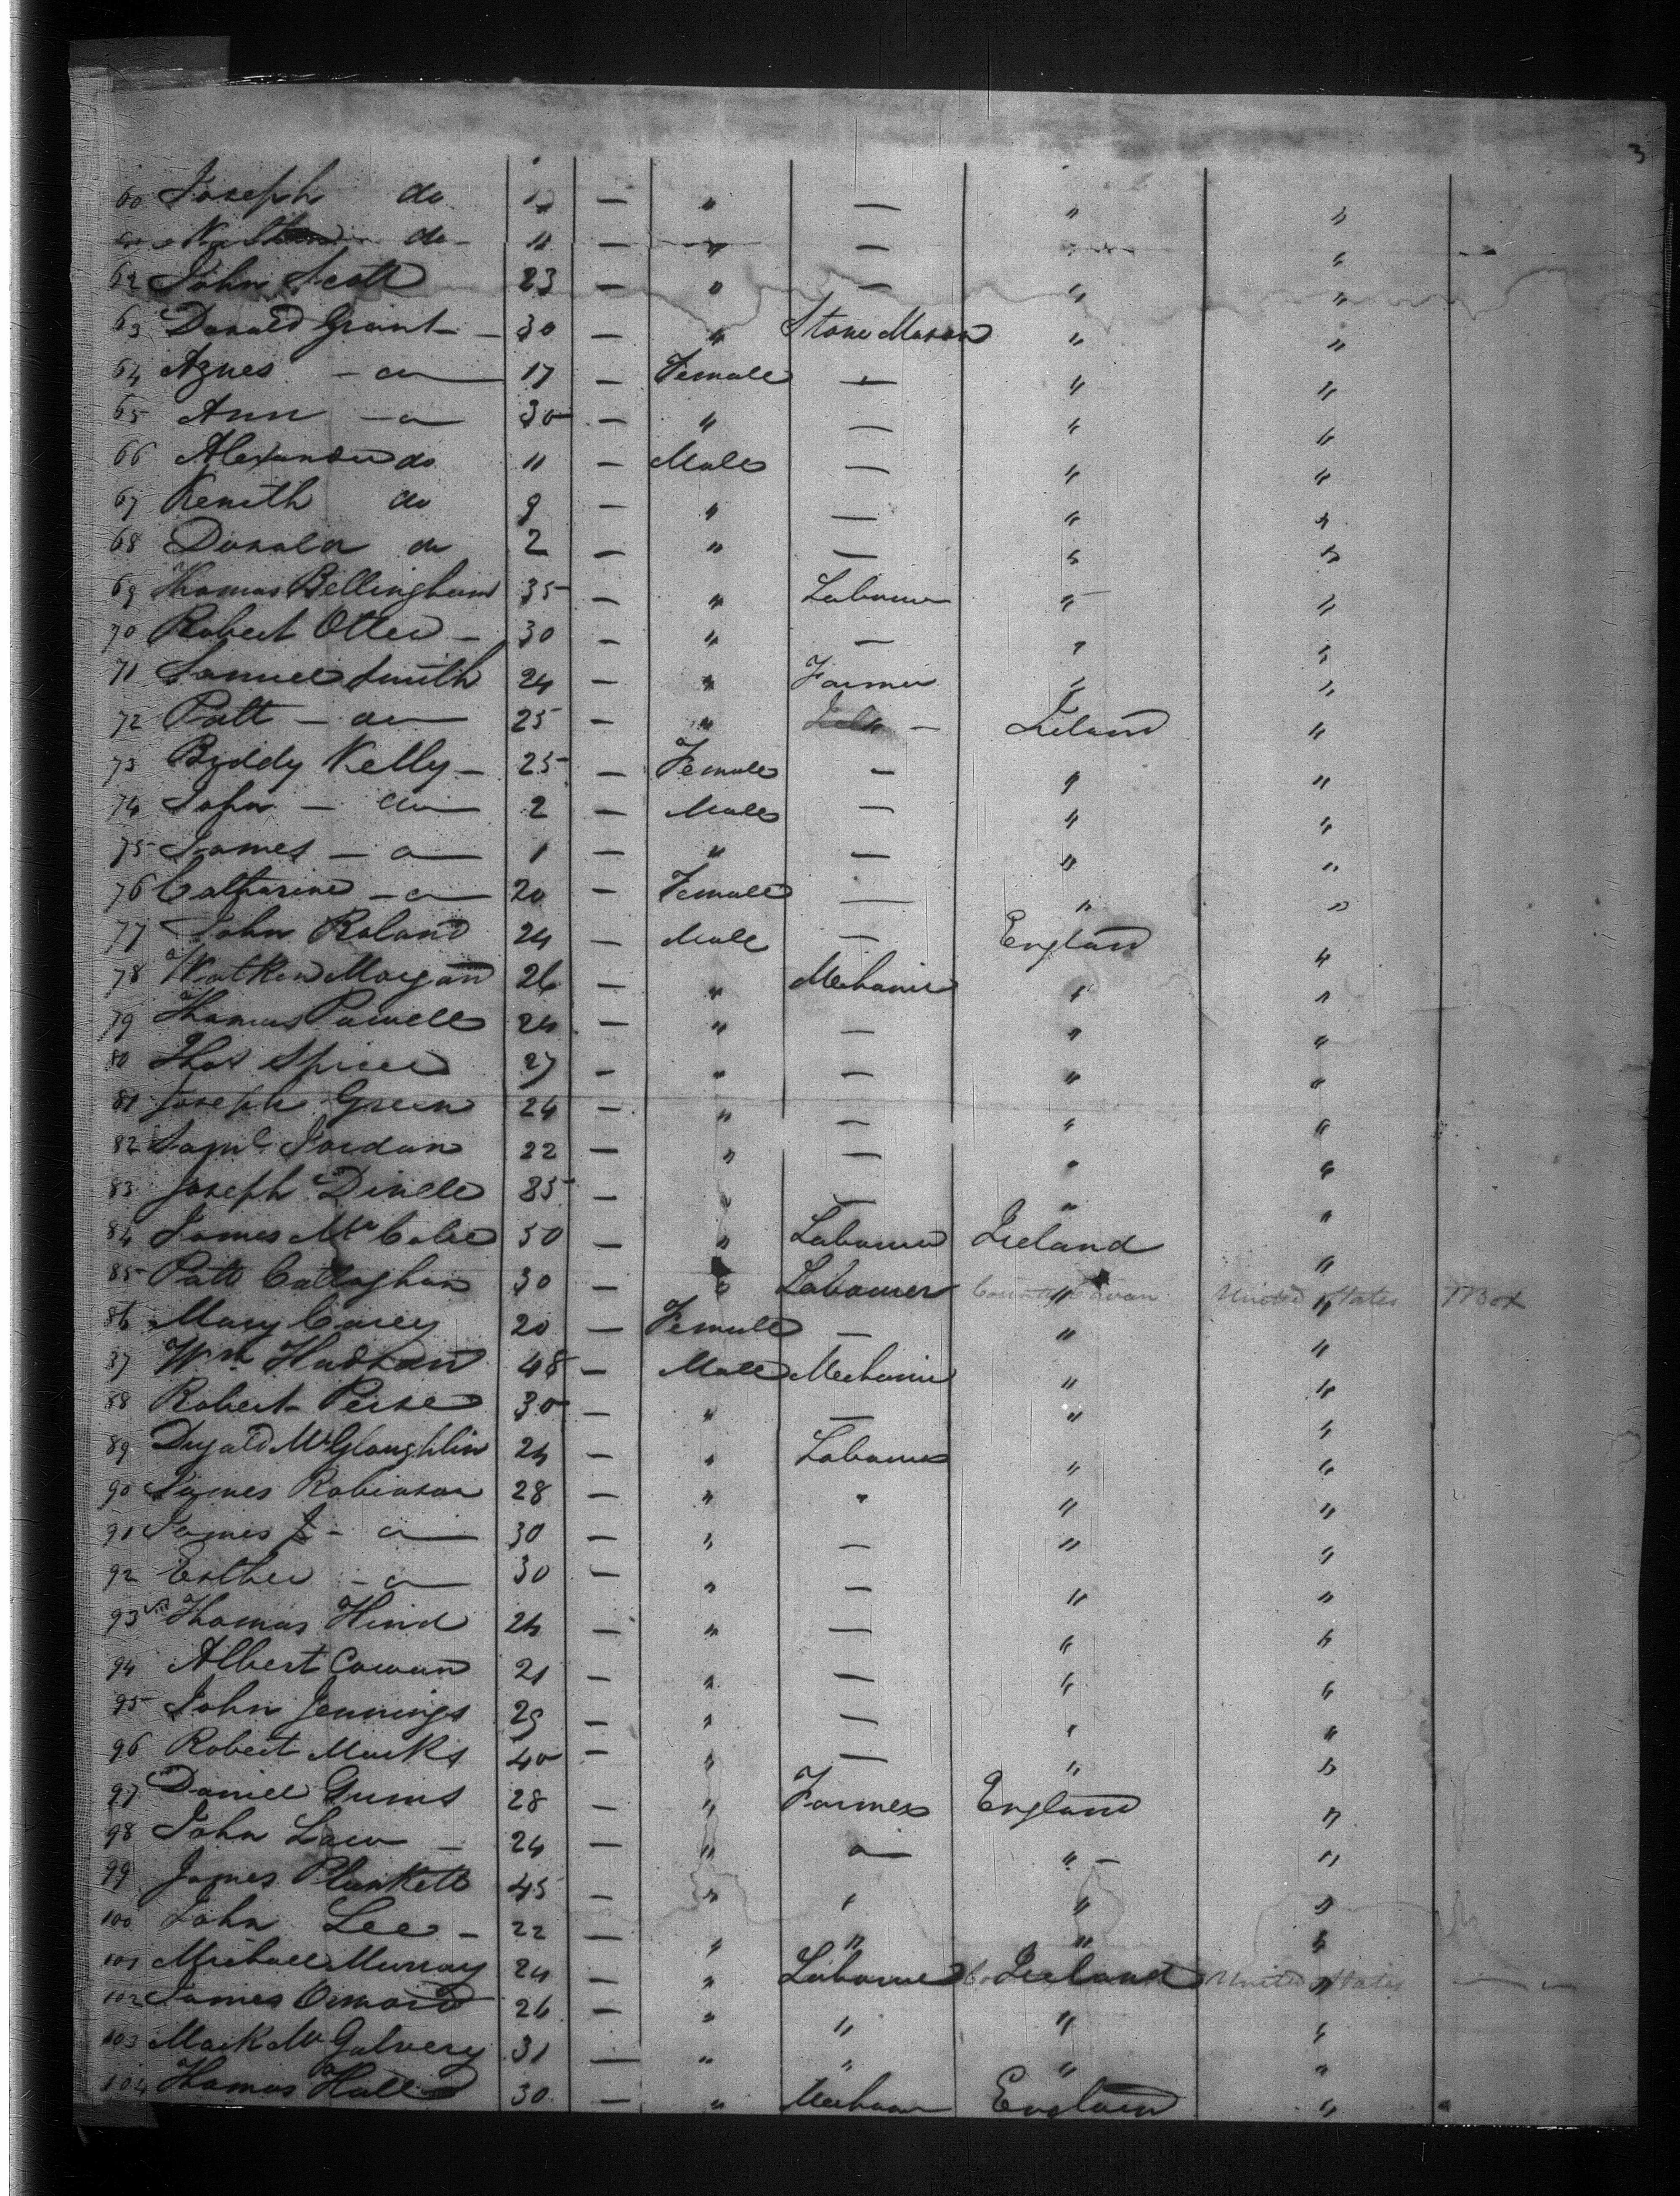 3
60 Joseph do 12 — " — " "
do - 11 — " — " "
62 John Scott 23 — " — " "
63 Donald Grant — 30 — " Stone Mason " "
64 Agnes — do 17 — Female — " "
65 Ann — do 30 — " — " "
66 Alexander do 11 — Male — " "
67 Kenith do 9 — " — " "
68 Donald do 2 — " — " "
69 Thomas Bellingham 35 — " Labourer " "
70 Robert Otter — 30 — " — " "
71 Samuel Smith 24 — " Farmer " "
72 Patt — do 25 — " — Ireland "
73 Biddy Kelly — 25 — Female — " "
74 John — do 2 — Male — " "
75 James — do 1 — " — " "
76 Catharine — do 20 — Female — " "
77 John Roland 24 — Male — England "
78 Watkin Morgan 26 — " Mechanic " "
79 Thomas Powell 24 — " — " "
80 Thos Spicer 27 — " — " "
81 Joseph Green 24 — " — " "
82 Saml Jordan 22 — " — " "
83 Joseph 35 — " — " "
84 James McCabe 50 — " Labourer Ireland "
85 Patt Callaghan 30 — " Labourer County Cavan " United States " 1 Box
86 Mary Carey 20 — Female — " "
87 Wm Hudson 48 — Male Mechanic " "
88 Robert Peirse 30 — " — " "
89 Dugald McGloughlin 24 — " Labourer " "
90 James Robinson 28 — " " " "
91 James J — do 30 — " — " "
92 Esther — do 30 — " — " "
93 Thomas Hind 24 — " — " "
94 Albert Cowan 21 — " — " "
95 John Jennings 29 — " — " "
96 Robert Marks 40 — " — " "
97 Daniel Gums 28 — " Farmer England "
98 John Law — 24 — " do " "
99 James Plunkett 45 — " " " "
100 John Lee — 22 — " " " "
101 Michael Murray 24 — " Labourer Ireland United States "
102 James Ormond 26 — " " " "
103 Mark McGalvery 31 — " " " "
104 Thomas Hall 30 — " Mechanic England "